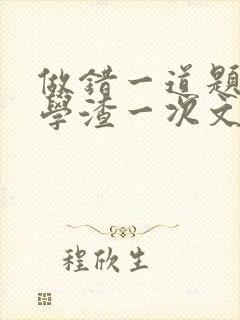 做錯一道題
學渣一次文
程欣生